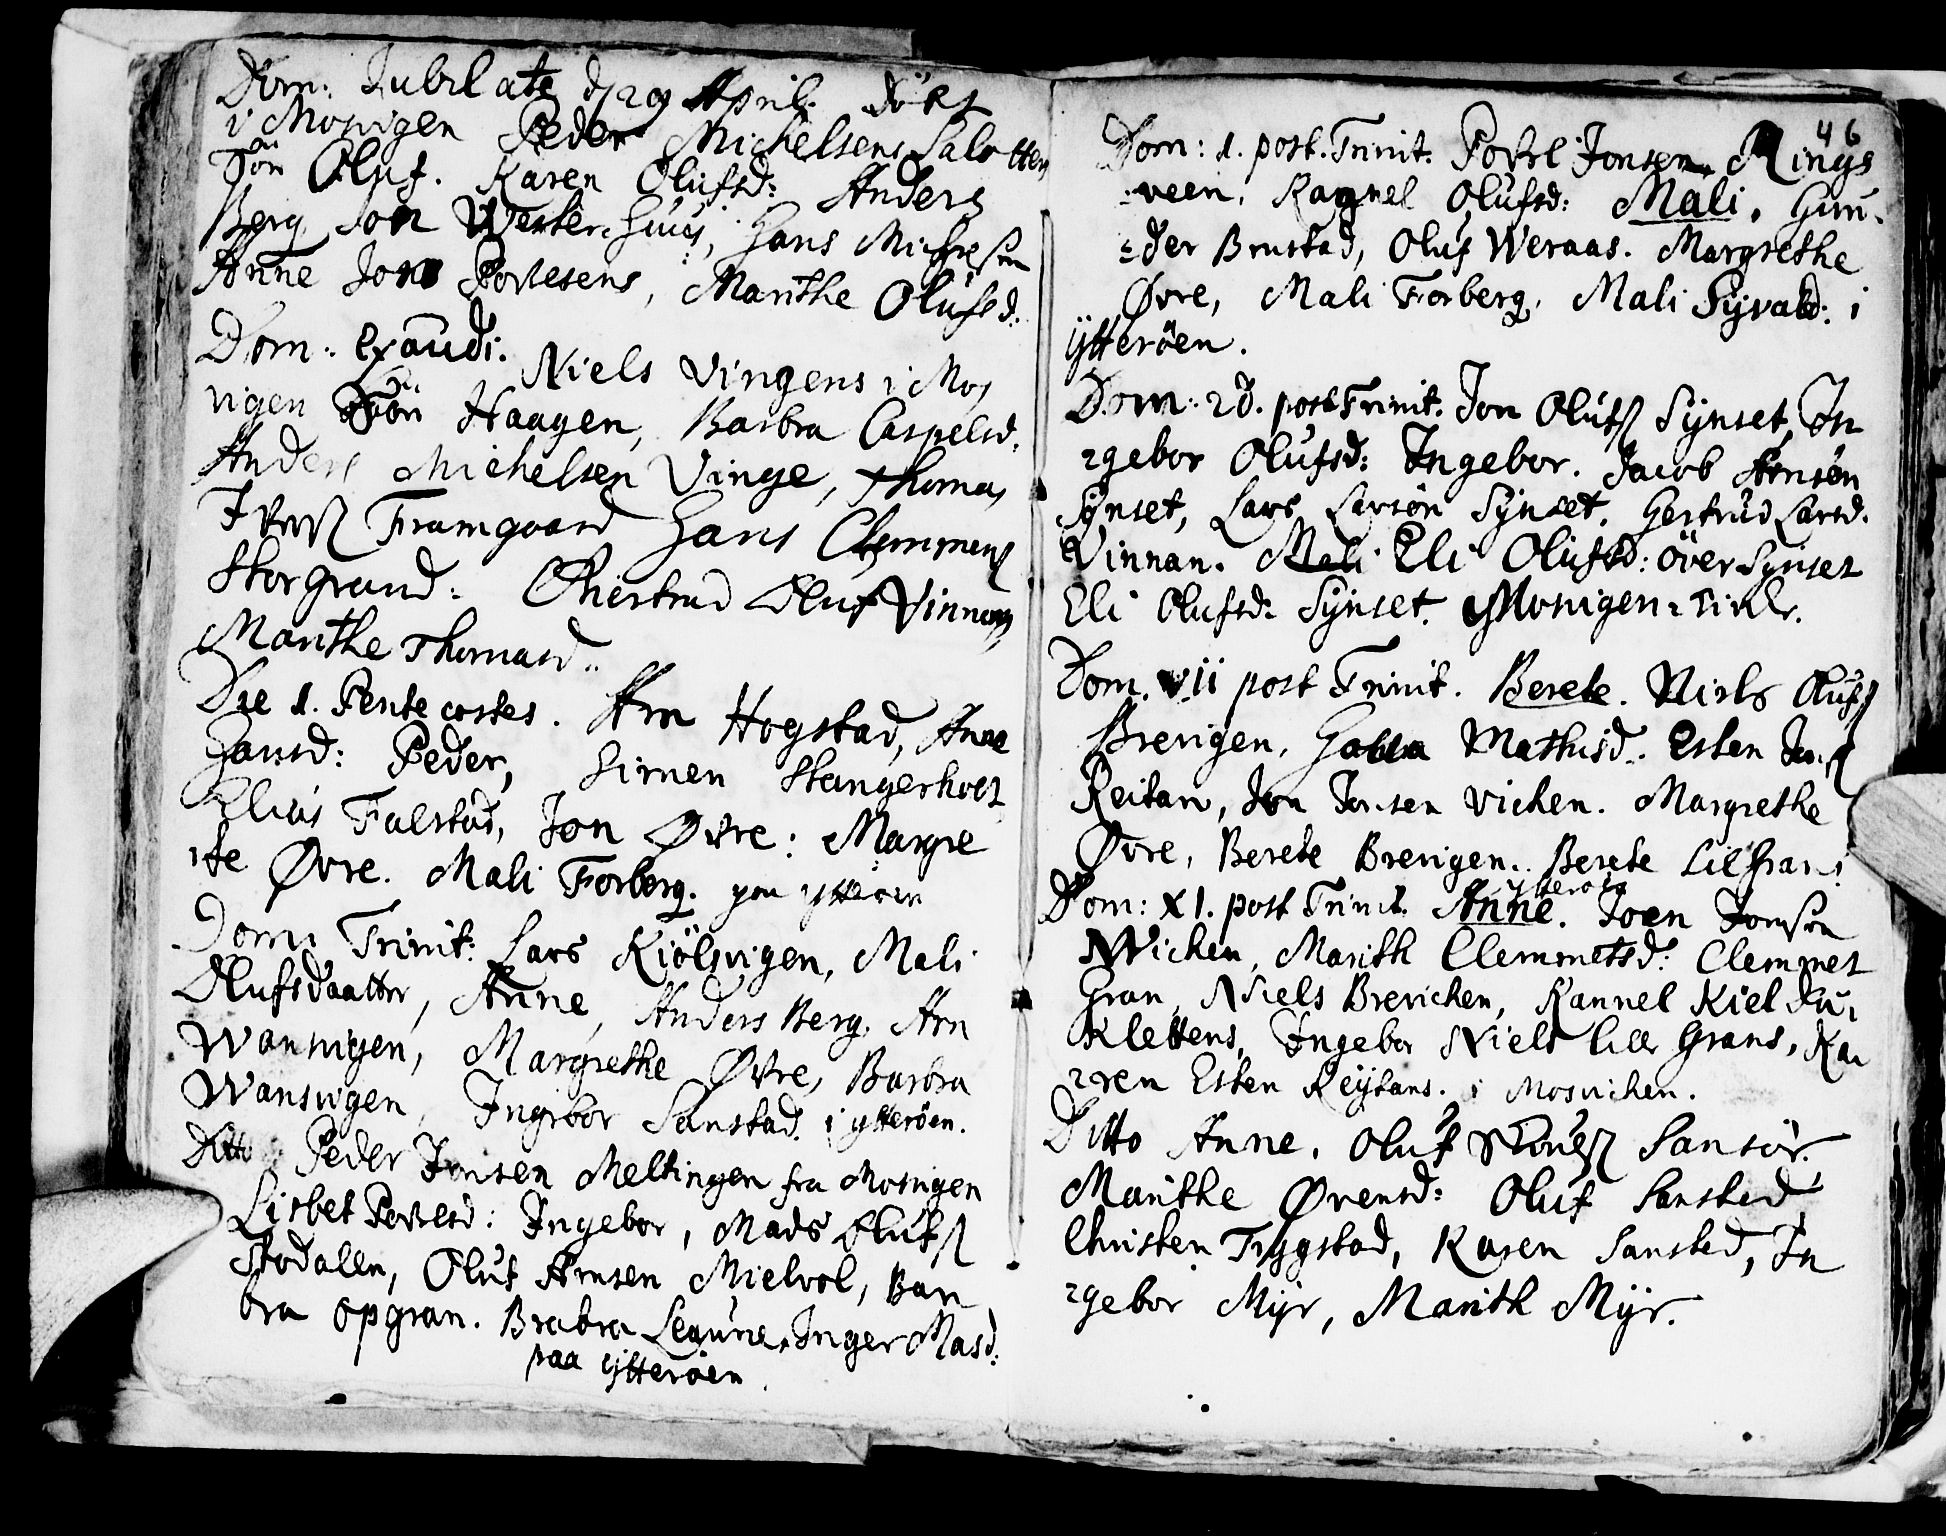 Dom: Jubilate d 29 April. döbt
i Mosvigen Peder Michelsens Salotten
Sön Oluf. Karen Olufsd: Anders
Berg Jon Westerhuus, Hans Michelsen
Anne Jons Povelsens, Marithe Olufsd:
Dom: Exaudi. Niels Vingens i Mos
vigen Sön Haagen, Barbra Caspelsd.
Anders Michelsen Vinge, Thomas
Framgaard Hans Clemmens
Storgrand: Chiertrud Oluf Vinnans
Marithe Thomasd.
Die 1. Pentecostes. Arn Hogstad, Anne
Hansd: Peder, Simen Stangerholt
Elias Falstad, Jon Øvre: Margre
te Øvre. Mali Forberg. paa ytterøen
Dom: Trinit: Lars Kiölsvigen, Mali
Olufsdaatter, Anne, Anders Berg, Arn
Wansvigen, Margrethe Øvre, Barbra
Wansvigen, Ingebor Sanstad. i ytterøen.
Ditto Peder Jonsen Meltingen fra Mosvigen
Lisbet Povelsd: Ingebor, Mads Olufs
Stodalen, Oluf Arnsen Mielvol, Bar
bra Opgran. Brabra Leaune, Inger Masd:
paa ytterøen.
46
Dom: 1. post. Trinit. Povel Jonsen Rings
-veen, Ragnel Olufsd: Mali. Gun-
=der Brustad, Oluf Weraas. Margrethe
Øvre, Mali Forberg, Mali Syvald: i
ytterøen.
Dom: 2d. post Trinit. Jon Olufs Synset, In
=gebor Olufsd: Ingebor. Jacob Arnsen
Synset, Lars Larsøn Synset, Gertrud Larsd.
Vinnan. Mali Eli Olufsd: över Synset
Eli Olufsd: Synset. Mosvigen
Dom. vii post Trinit. Berete. Niels Olufs
Brerigen, Mathisd. Esten Jons
Reitan, Jon Jonsen Vichen. Margrethe
Øvre, Berete Brerigen. Berete Lilgran i
ytterøen
Dom: XI. post Trinit. Anne. Joen Jonsen
Wichen, Marith Clemmetsd: Clemmet
Gran, Niels Brerichen, Rannel Kiel
Klettens, Ingebor Niels lille Grans, Ka
=ren Esten Reytans. i Mosvichen.
Ditto Anne. Oluf Sansør.
Marithe Øvensd: Oluf Sanstad
Christen Trygstad, Karen Sanstad, In
=gebor Myr, Marith Myr.